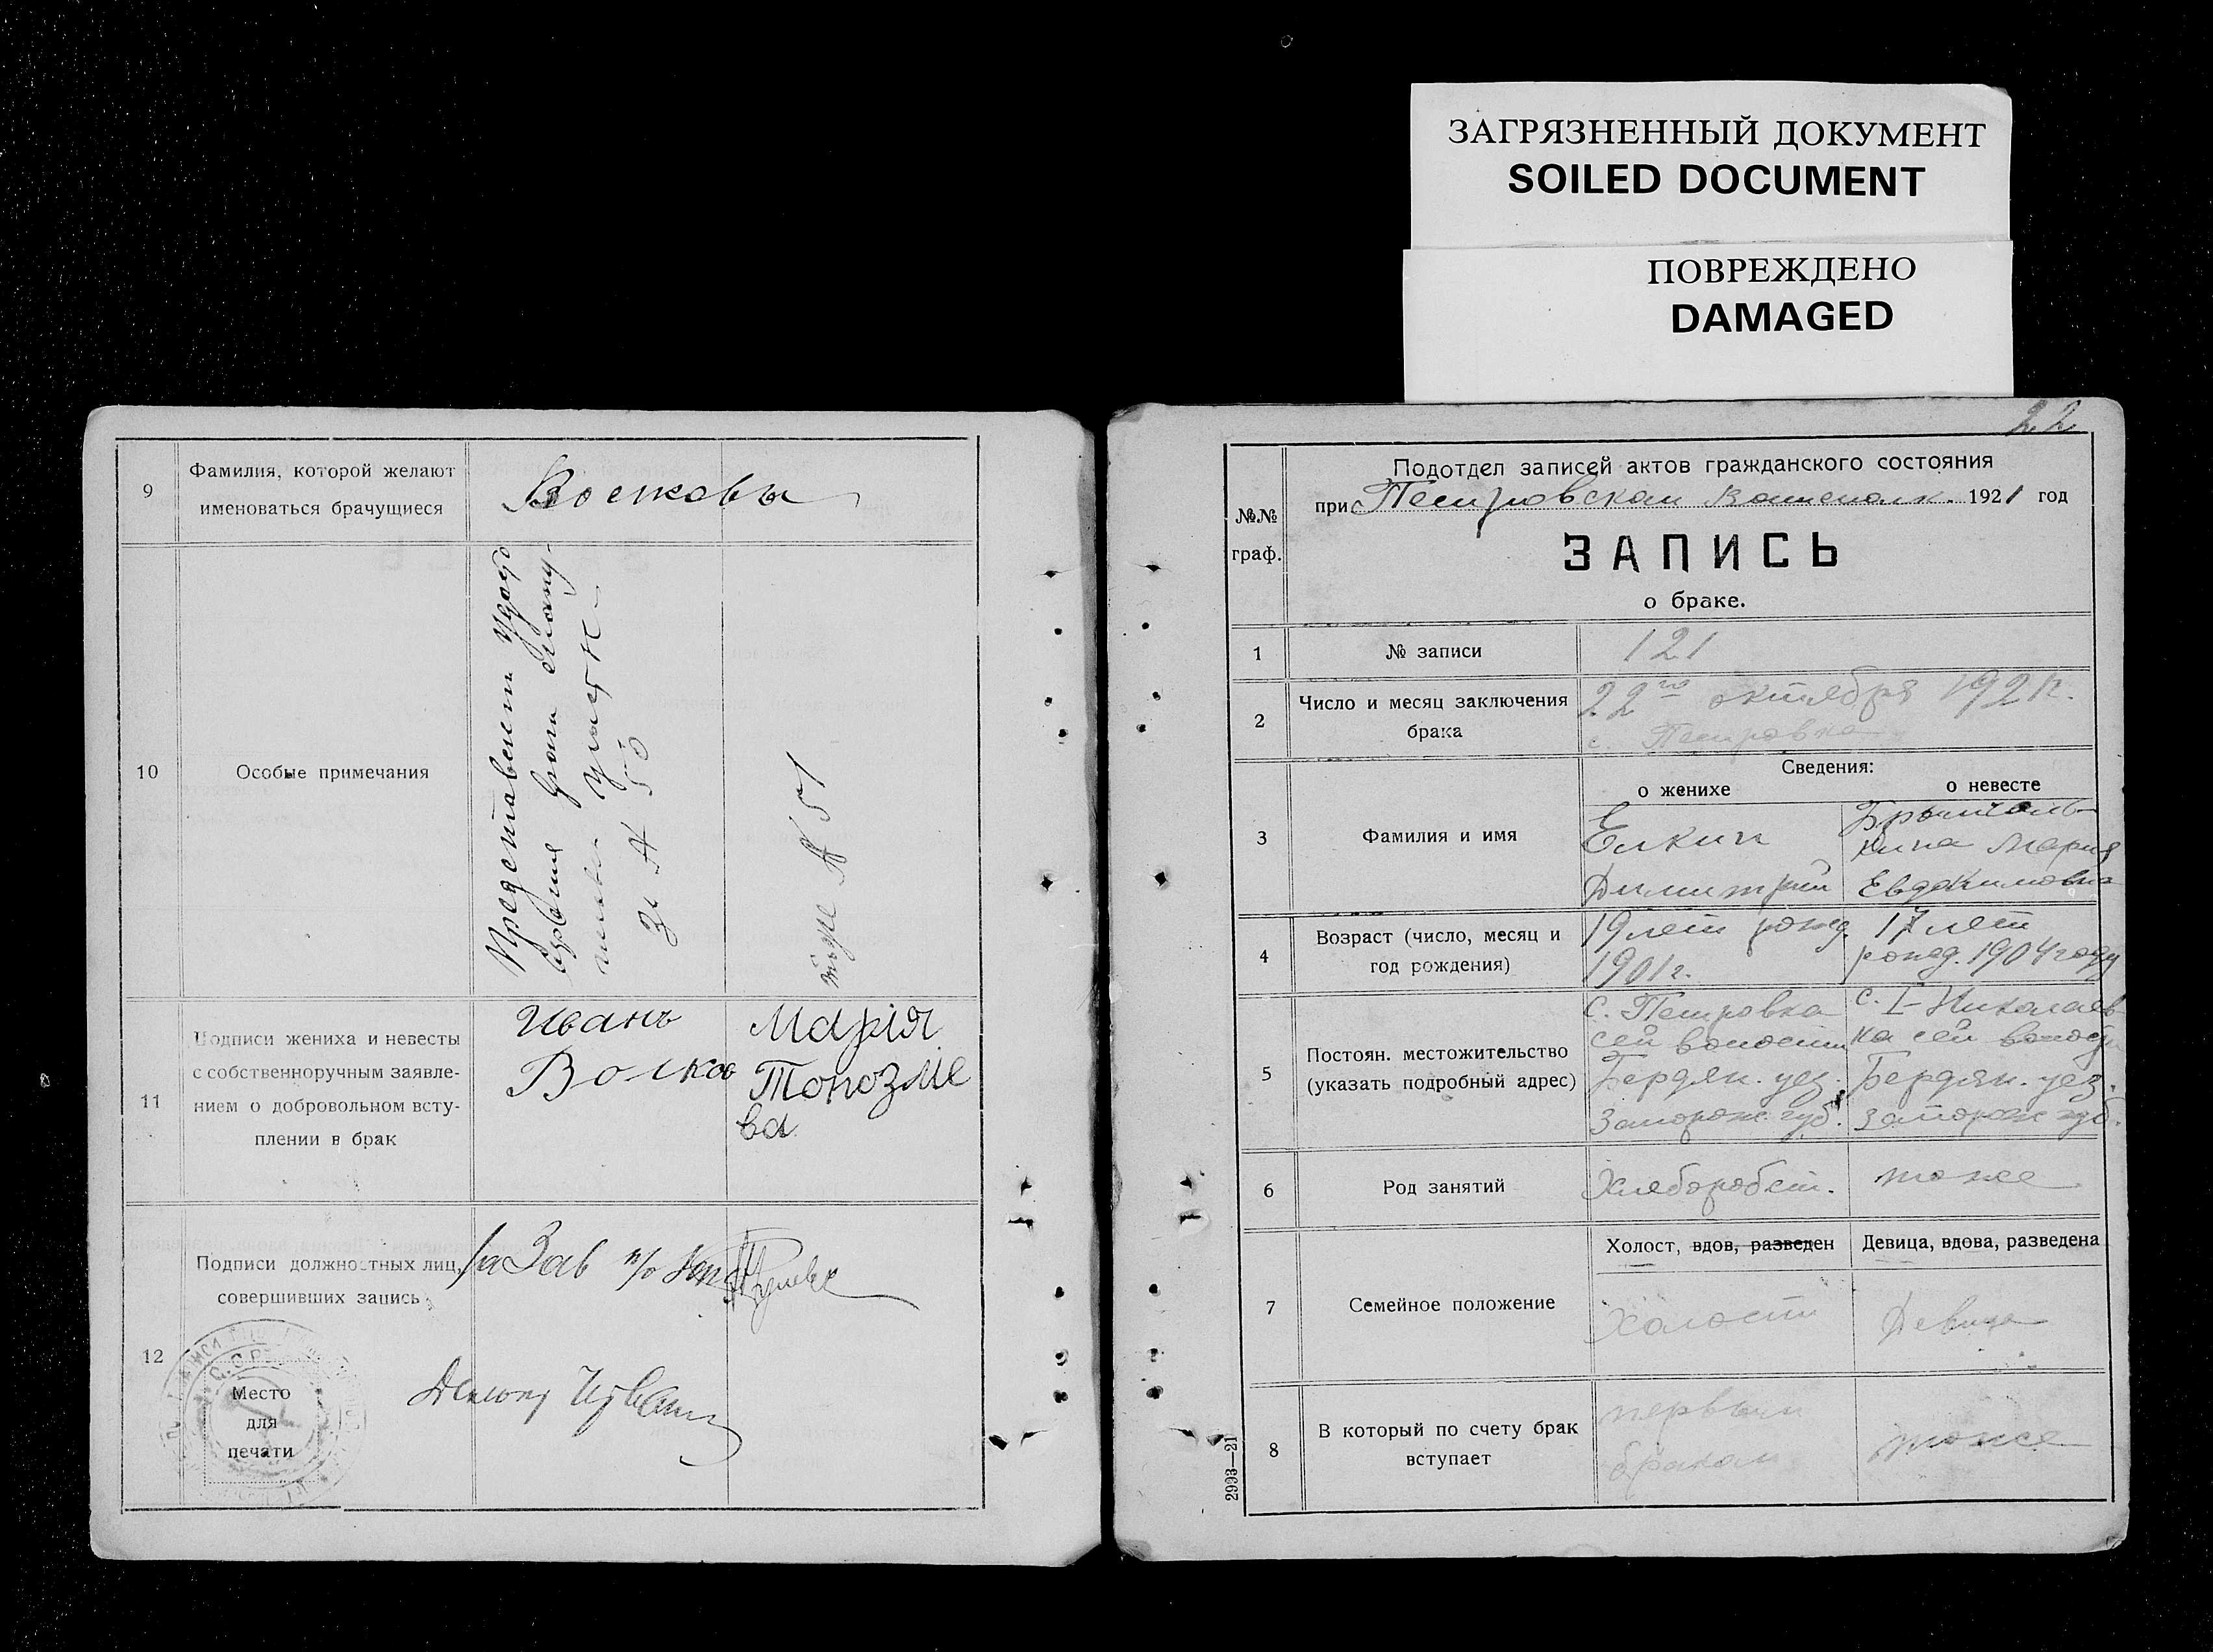 ЗАГРЯЗНЕННЫЙ ДОКУМЕНТ
SOILED DOCUMENT
ПОВРЕЖДЕНО
DAMAGED
9
Фамилия, которой желают
именоваться брачущиеся
Волковы
10
Особые примечания
Представлены удосто
за № 50
тоже № 51
11
Подписи жениха и невесты
с собственноручным заявле-
нием о добровольном всту-
плении в брак
Иванъ
Волков
Марія
Топозле
ва
12
Подписи должностных лиц,
совершивших запись
За Зав п/о
Место
для
печати
22
№№
граф.
Подотдел записей актов гражданского состояния
при Петровском 1921 год
ЗАПИСЬ
о браке.
1
№ записи
121
2
Число и месяц заключения
брака
22го октября 1921г.
с. Петровка
Сведения:
о женихе
о невесте
3
Фамилия и имя
Елкин
Димитрий
кина Мария
Евдокимовна
4
Возраст (число, месяц и
год рождения)
19 лет рожд.
1901г.
17 лет
рожд. 1904 году
5
Постоян. местожительство
(указать подробный адрес)
с. Петровка
сей волости
Бердян. уез.
Запорож. губ.
с. I-Николаев
ка сей волости
Бердян. уез.
Запорож губ.
6
Род занятий
Хлебороб
тоже
7
Семейное положение
Холост, вдов, разведен
Девица, вдова, разведена
Холост
Девица
8
В который по счету брак
вступает
первым
браком
тоже
2993—21